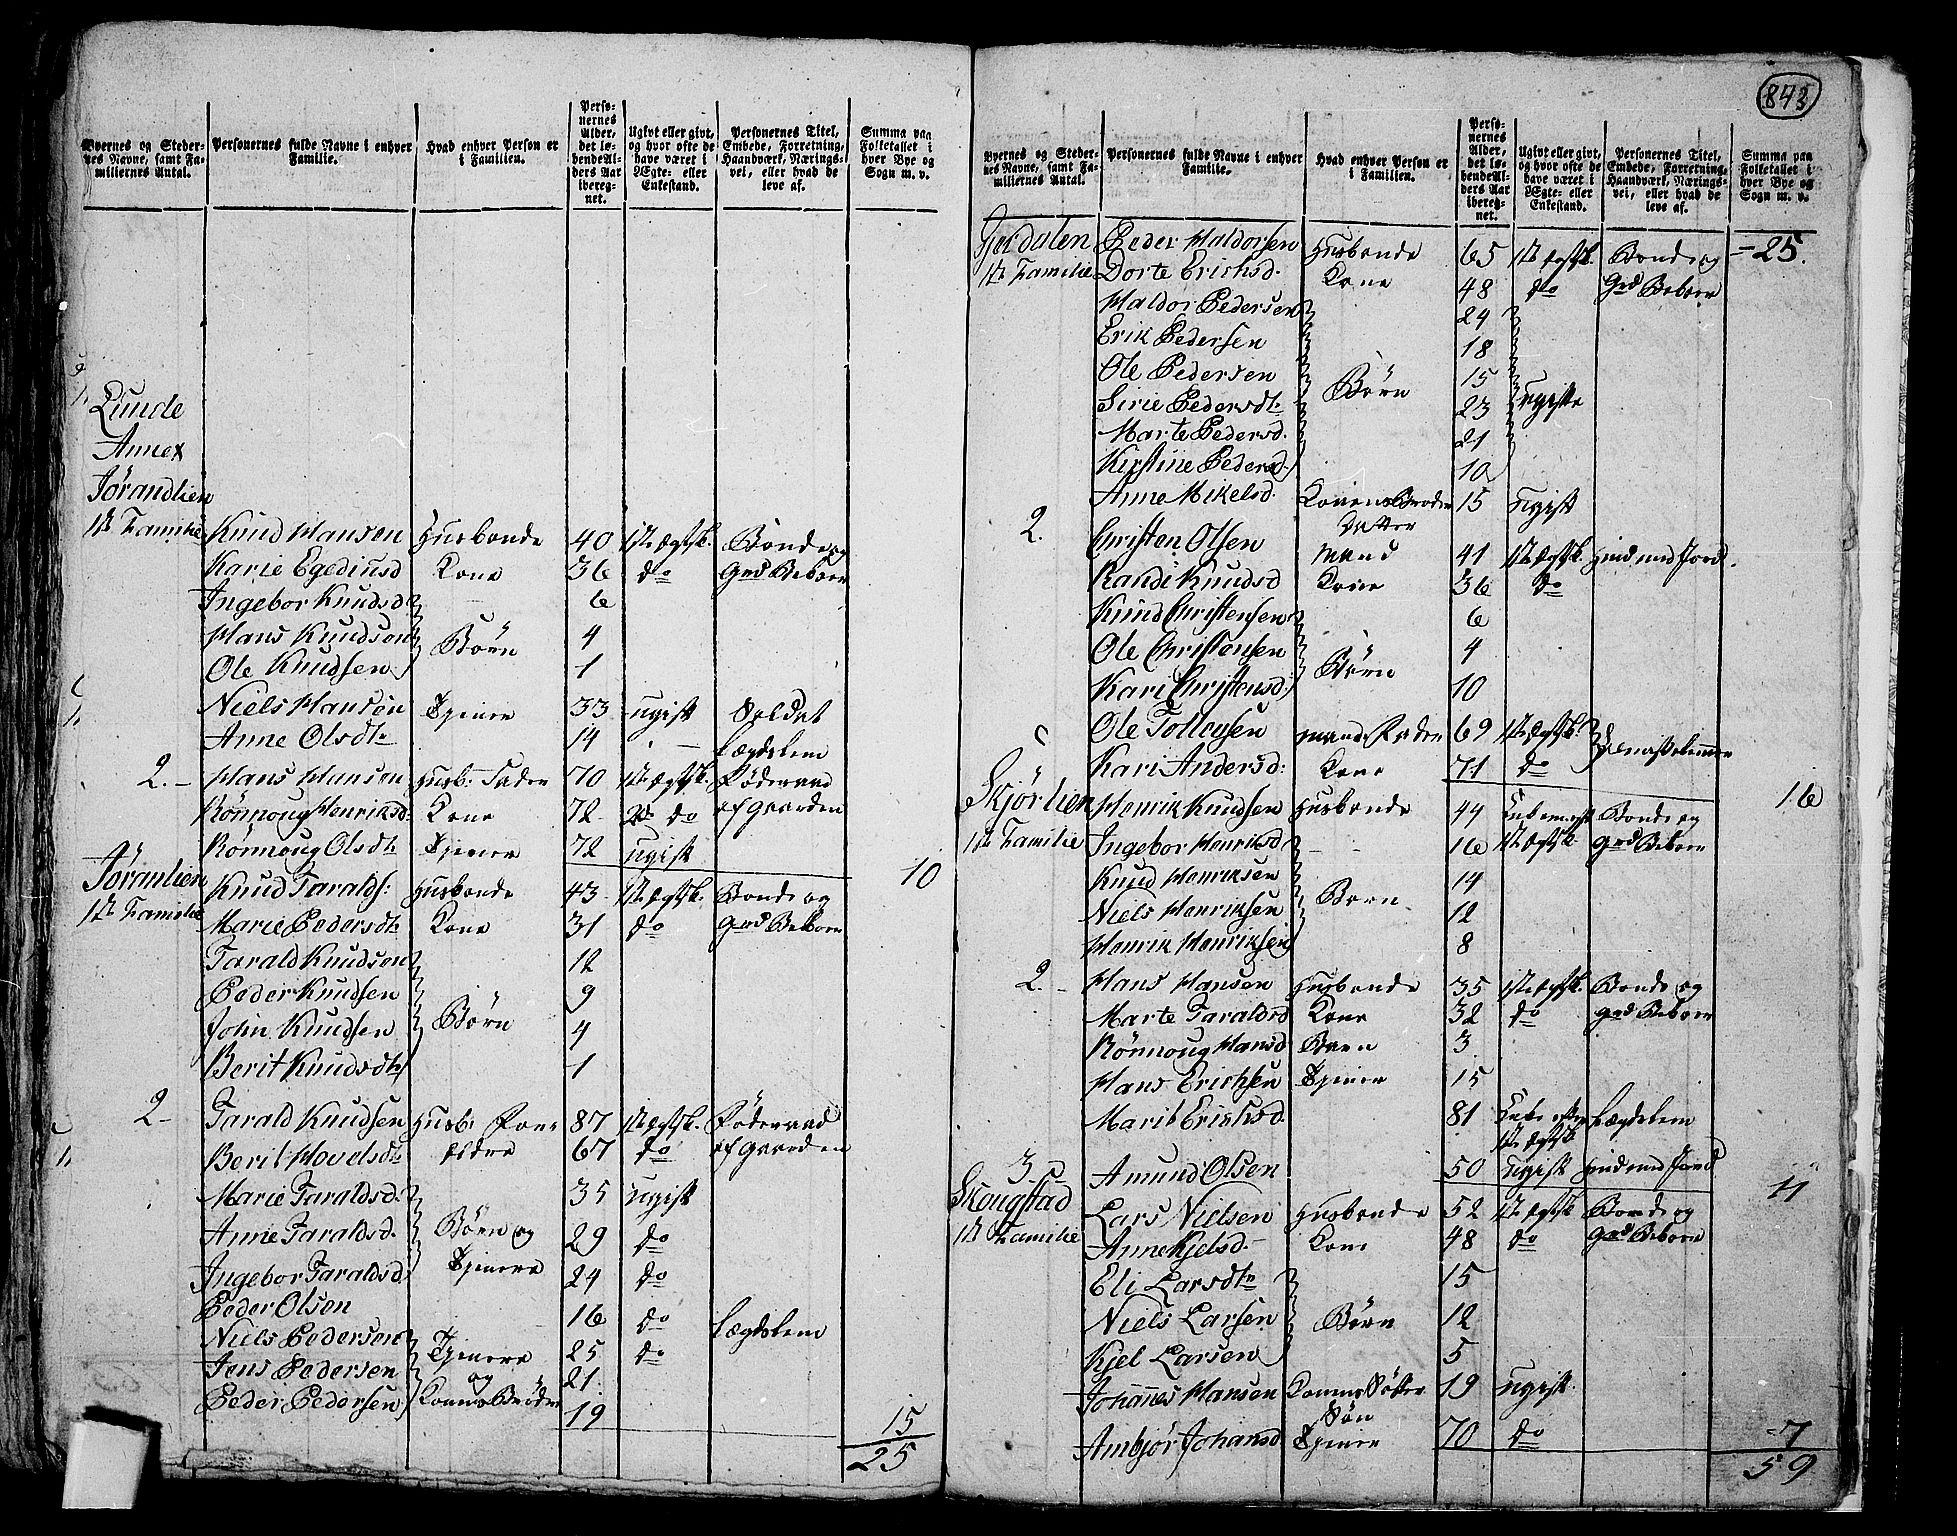 Byernes og Steder-
nes Navne, samt Fa-
miliernes Antal.
Personernes fulde Navne i enhver
Familie.
Hvad enhver Person er
i Familien.
Perso-
nernes
Alder,
det lø-
bende Al-
ders Aar
ibereg-
net.
Ugivt eller givt,
og hvor ofte de
have været i
Ægte- eller
Enkestand.
Personernes Titel,
Embede, Forretning,
Haandværk, Nærings-
vei, eller hvad de
leve af.
Summa paa
Folketallet i
hver Bye og
Sogn m. v.
Lunde
Annex
Jørandlien
1ste Familie Knud Hansen Husbonde 40 1ste Ægtsk. Bonde og
Karie Egediusd Kone 36 do Grd Beboer
Ingebor Knudsd 6
Hans Knudsøn Børn 4
Ole Knudsen 1
Niels Hansøn Tjener 33 ugift Soldat
Anne Olsdtr 14 Lægdslem
2. Hans Hansøn Husb: Fader 70 1ste Ægtsk. Føderaad
Rønnoug Henriksd: Kone 72 2de do af Gaarden
Rønnoug Olsdtr Tjener 72 ugift
10
Jøranlien Knud Taralds: Husbonde 43 1ste Ægtsk. Bonde og
1ste Familie Marie Pedersdtr Kone 31 do Grd Beboer
Tarald Knudsøn 12
Peder Knudsen 9
John Knudsen Børn 4
Berit Knudsdtr 1
2 Tarald Knudsen Husb: For- 87 1ste Ægtsk. Føderaad
Berit Hovelsdtr ældre 67 do af Gaarden
Marie Taraldsd: 35 ugift
Anne Taraldsd. Børn og 29 do
Ingebor Taraldsd Tjenere 24 do
Peder Olsen 16 do Lægdslem
Niels Pedersen Tjenere 25 do
Jens Pedersen og 21
Peder Pedersen Konens Brødre 19
15
25
843
Byernes og Steder-
nes Navne, samt Fa-
miliernes Antal.
Personernes fulde Navne i enhver
Familie.
Hvad enhver Person er
i Familien.
Perso-
nernes
Alder,
det lø-
bende Al-
ders Aar
ibereg-
net.
Ugivt eller givt,
og hvor ofte de
have været i
Ægte- eller
Enkestand.
Personernes Titel,
Embede, Forretning,
Haandværk, Nærings-
vei, eller hvad de
leve af.
Summa paa
Folketallet i
hver Bye og
Sogn m. v.
Gjerdalen Peder Haldorsen Husbonde 65 1ste Ægtsk. Bonde og 25.
1ste Familie Dorte Erichsd. Kone 48 do Grd Beboer
Haldor Pedersen 24
Erik Pedersen 18
Ole Pedersen 15
Sirie Pedersdtr Børn 23 Ugifte
Marte Pedersd. 21
Kirstine Pedersd. 10
Anne Mikelsd. Konens Broder 15 Ugift
Datter
2. Christen Olsen Mand 41 1ste Ægtsk. Huusmd med Jord.
Randi Knudsd Kone 36 do
Knud Christensen 6
Ole Christensen Børn 4
Kari Christensd: 10
Ole Tollevsen Mands Fader 69 1ste Ægtsk.
Kari Andersd: Kone 71 do
16
Skjørlien Henrik Knudsen Husbonde 44 Enkemand Bonde og
1ste Familie Ingebor Henriksd 16 1ste Ægtsk. Grd Beboer
Knud Henriksen 14
Niels Henriksen Børn 12
Henrik Henriksen 8
2. Hans Hansen Husbonde 35 1ste Ægtsk. Bonde og
Marte Taraldsd Kone 32 do Grd Beboer
Rønnoug Hansd Barn 3
Hans Erichsen Tjener 15
Marit Erichsd. 81 Enke efter Lægdslem
1ste Ægtsk
3. Amund Olsen 50 Ugift Huusmd med Jord
11
Skougstad Lars Nielsen Husbonde 52 1ste Ægtsk Bonde og
1ste Familie Anne Kjelsd. Kone 48 do Grd Beboer
Eli Larsdtr 15
Niels Larsen Børn 12
Kjel Larsen 5
Johannes Hansen Konens Søster 19 Ugift.
Søn
Ambjør Johansd Tjener 70 do
7
59